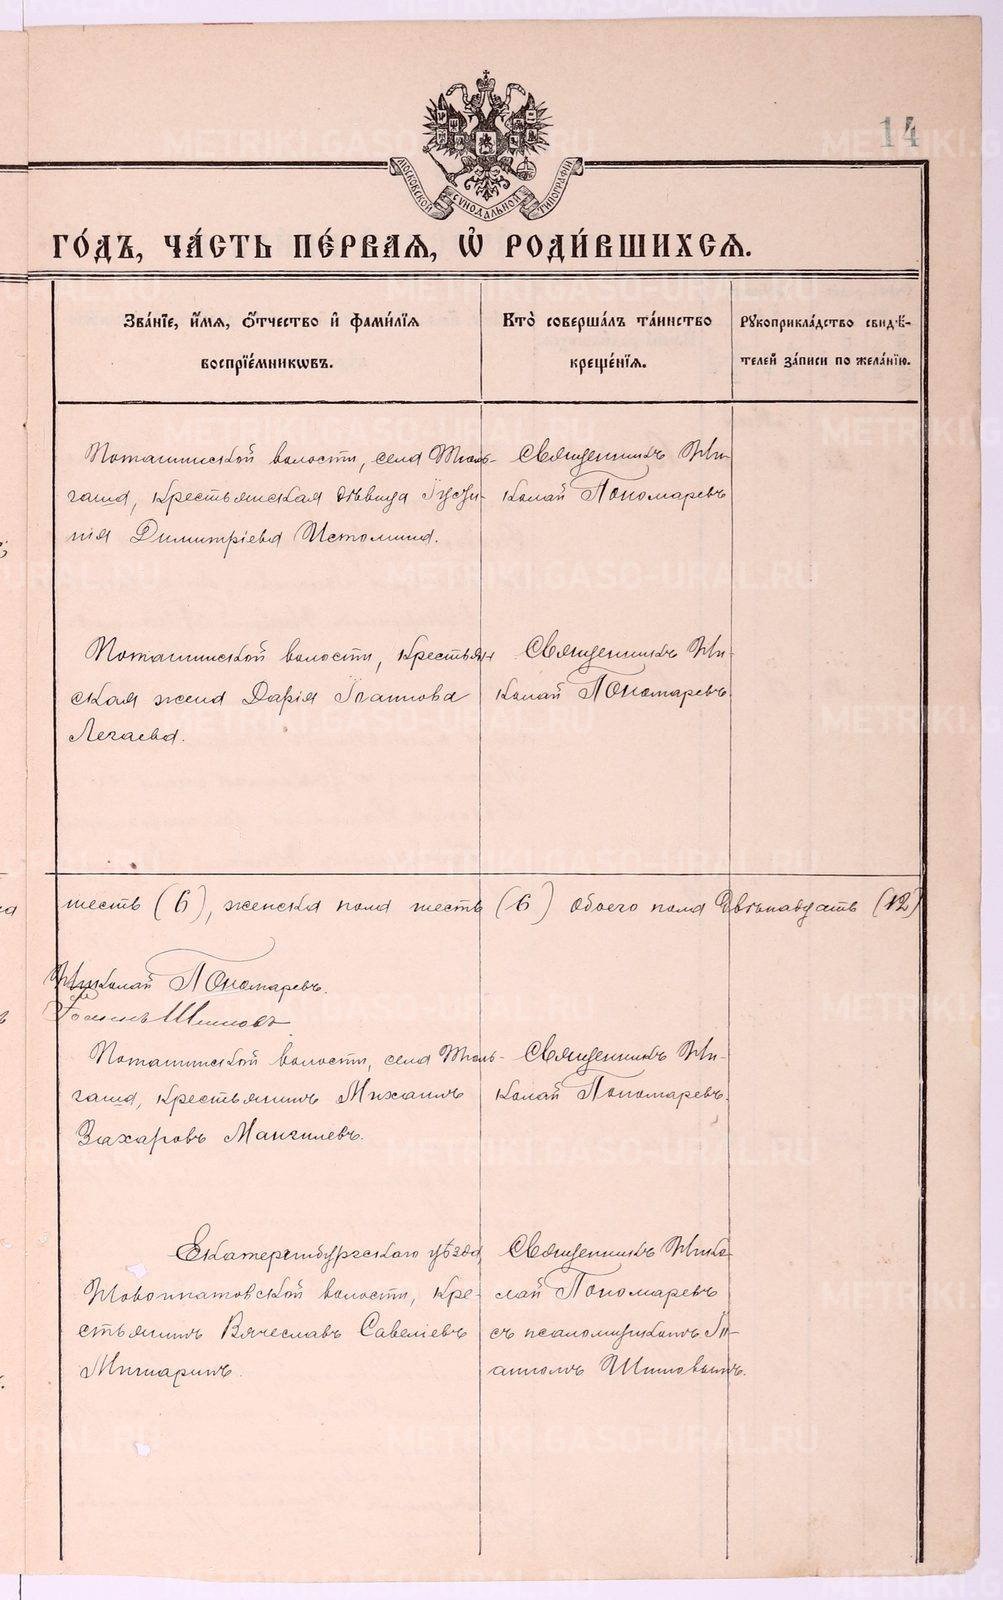 14
МОСКОВСКОЙ СѴНОДАЛЬНОЙ ТИПОГРАФІИ
ГО́ДЪ, ЧА́СТЬ ПЕ́РВАЯ, Ѽ РОДИ́ВШИХСЯ.
Зва́нїе, и҆́мя, ѻ҆́тчество и҆ фами́лїя
воспрїе́мникѡвъ.
Кто̀ соверша́лъ та́инство
креще́нїя.
Рꙋкоприкла́дство свидѣ́-
телей за́писи по жела́нїю.
Поташинской волости, села Тюль-
гаша, крестьянская дѣвица Іусти-
нія Димитріева Истомина.
Священникъ Ни-
колай Пономаревъ
Поташинской волости, крестьян
ская жена Дарія Ипатова
Легаева.
Священникъ Ни-
колай Пономаревъ
шесть (6), женска пола шесть (6) обоего пола двѣнадцать (12)
Николай Пономаревъ.
Шиповъ
Поташинской волости, села Тюль-
гаша, крестьянинъ Михаилъ
Захаровъ Мангилевъ.
Священникъ Ни-
колай Пономаревъ.
Екатеринбургскаго уѣзда,
Новоипатовской волости, кре-
стьянинъ Вячеславъ Савеліевъ
Мишаринъ.
Священникъ Нико-
лай Пономаревъ
съ псаломщикомъ
Шиповымъ.
METRIKI.GASO-URAL.RU